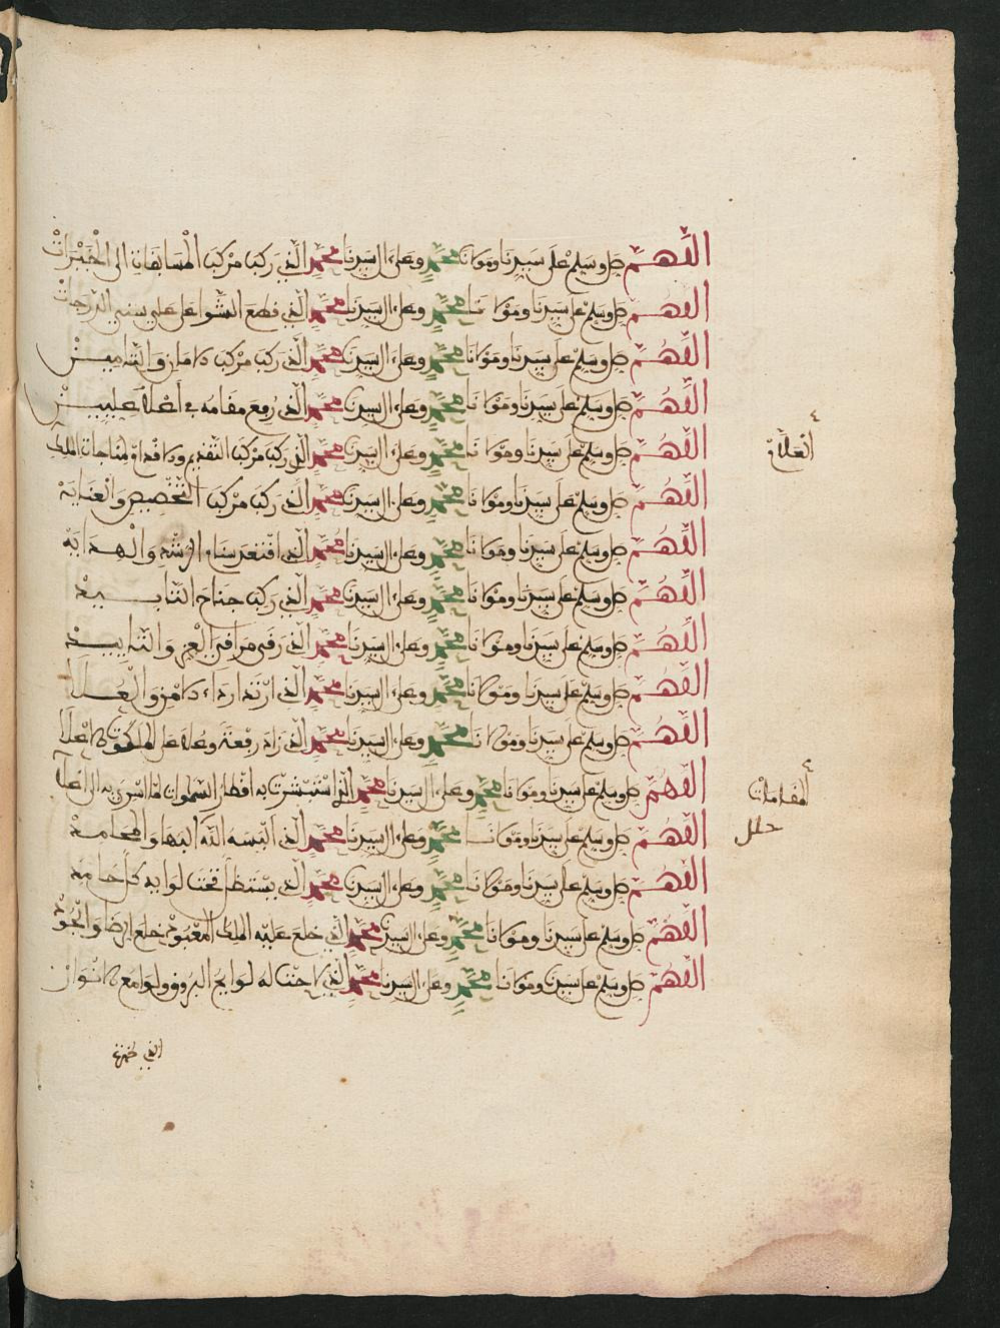 اللهم صل وسلم على سيدنا ومولانا محمد وعلى ال سيدنا محمد الذي ركب مركب المسابقات الى الخيرات
اللهم صل وسلم على سيدنا ومولانا محمد وعلى ال سيدنا محمد الذي قطع الشواعل على الدرجات
اللهم صل وسلم على سيدنا ومولانا محمد وعلى ال سيدنا محمد الذي ركب مركب الامان والتامين
اللهم صل وسلم على سيدنا ومولانا محمد وعلى ال سيدنا محمد الذي رفع مقامه في اعلا عليين
اللهم صل وسلم على سيدنا ومولانا محمد وعلى ال سيدنا محمد الذي ركب مركب التقديم والاقدام لمناجات الملك
اللهم صل وسلم على سيدنا ومولانا محمد وعلى ال سيدنا محمد الذي ركب مركب التخصيص والعناية
اللهم صل وسلم على سيدنا ومولانا محمد وعلى ال سيدنا محمد الذي اقتعد سنام الرشد والهداية
اللهم صل وسلم على سيدنا ومولانا محمد وعلى ال سيدنا محمد الذي ركب جناح التاييد
اللهم صل وسلم على سيدنا ومولانا محمد وعلى ال سيدنا محمد الذي رقى مراقي العز والتاييد
اللهم صل وسلم على سيدنا ومولانا محمد وعلى ال سيدنا محمد الذي ارتدا رداء الامن والعلا
اللهم صل وسلم على سيدنا ومولانا محمد وعلى ال سيدنا محمد الذي زاد رفعة وعلا على الملكوت الاعلا
اللهم صل وسلم على سيدنا ومولانا محمد وعلى ال سيدنا محمد الذي استبشرت به اقطار السموات لما اسري به الى اعلا
اللهم صل وسلم على سيدنا ومولانا محمد وعلى ال سيدنا محمد الذي البسه الله البها والمحامد
اللهم صل وسلم على سيدنا ومولانا محمد وعلى ال سيدنا محمد الذي يستظل تحت لوايه كل حامد
اللهم صل وسلم على سيدنا ومولانا محمد وعلى ال سيدنا محمد الذي خلع عليه الملك المعبود خلع الرضا والجود
اللهم صل وسلم على سيدنا ومولانا محمد وعلى ال سيدنا محمد الذي لاحت له لوايح البروق ولوامع الانوار
العلاق
المقامات
حلل
الذي